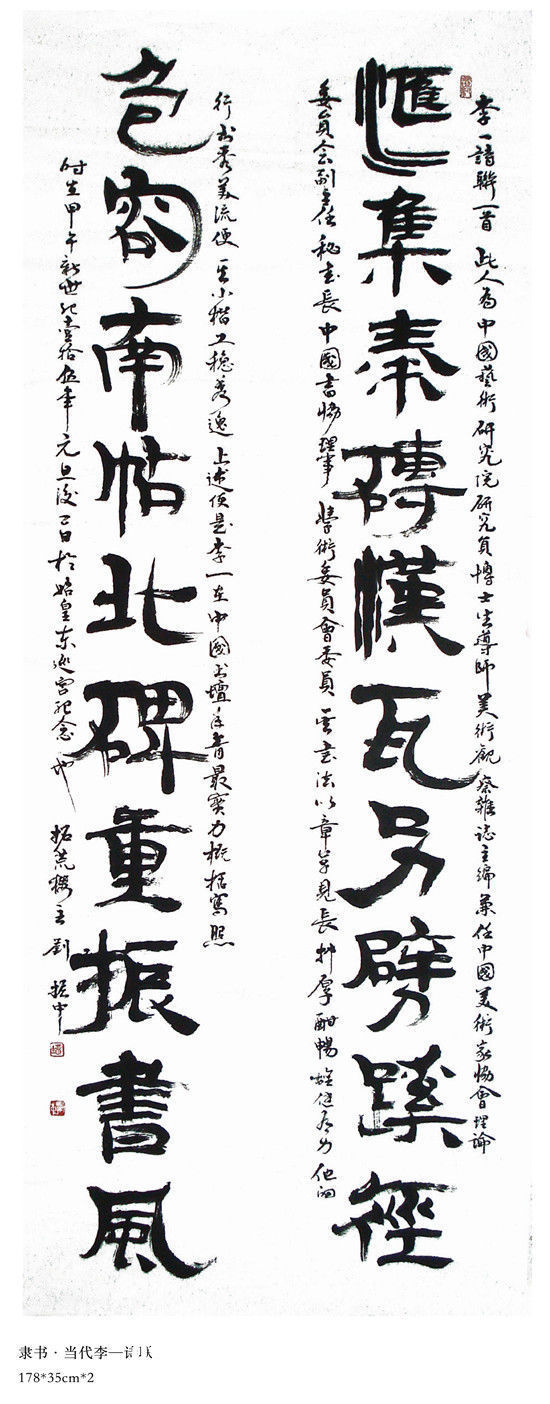 匯集秦磚漢瓦另劈蹊徑
李一詩聯一首 此人為中國藝術研究院研究員博士生導師美術觀察雜誌主編兼任中國美術家協會理論
委員会副主任秘书長中國書協理事 學術委員會委員 其书法以章草見長朴厚酣暢雄健有力他的
包容南帖北碑重振書風
行书秀美流便 其小楷工穩秀逸 上述便是李一在中國书壇 最實力概括寫照
时在甲午新世纪壹拾伍年元旦後 日於始皇东巡宫纪念也 拓荒樓主劉振中
隶书·当代李一
178*35cm*2